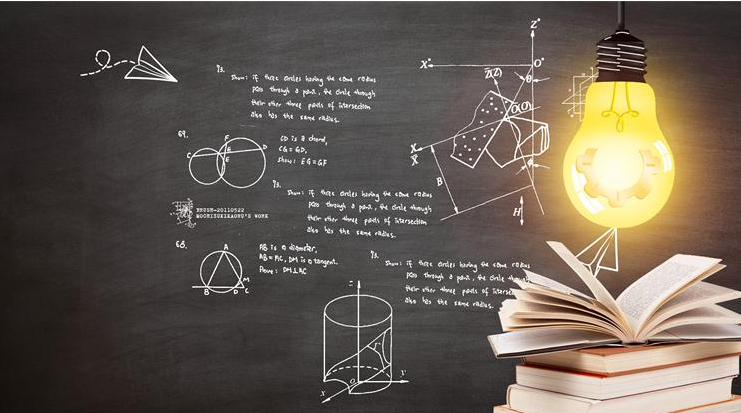 73.
Show: if three circles having the same radius
pass through a point, the circle through
their other three points of intersection
also has the same radius.
69.
CD is a chord,
CG = GD,
Show: EG = GF
F
C
G
D
E
BRUSH-20110522
MOCHIZUKIKAORU'S WORK
73.
Show: if three circles having the same radius
pass through a point, the circle through
their other three points of intersection
also has the same radius.
68.
AB is a diameter,
AB = AC, DM is a tangent.
Prove: DM⊥AC
A
M
B
D
C
73.
Show: if three circles having the same radius
pass through a point, the circle through
their other three points of
also has the same radius.
Z"
X"
O"
Z(Z)
θ
O(O)
X
X
B
H
z
r
O
y
x